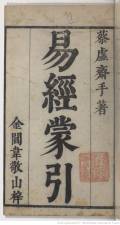 蔡虛齋手著
易經蒙引
金閶韋敬山梓